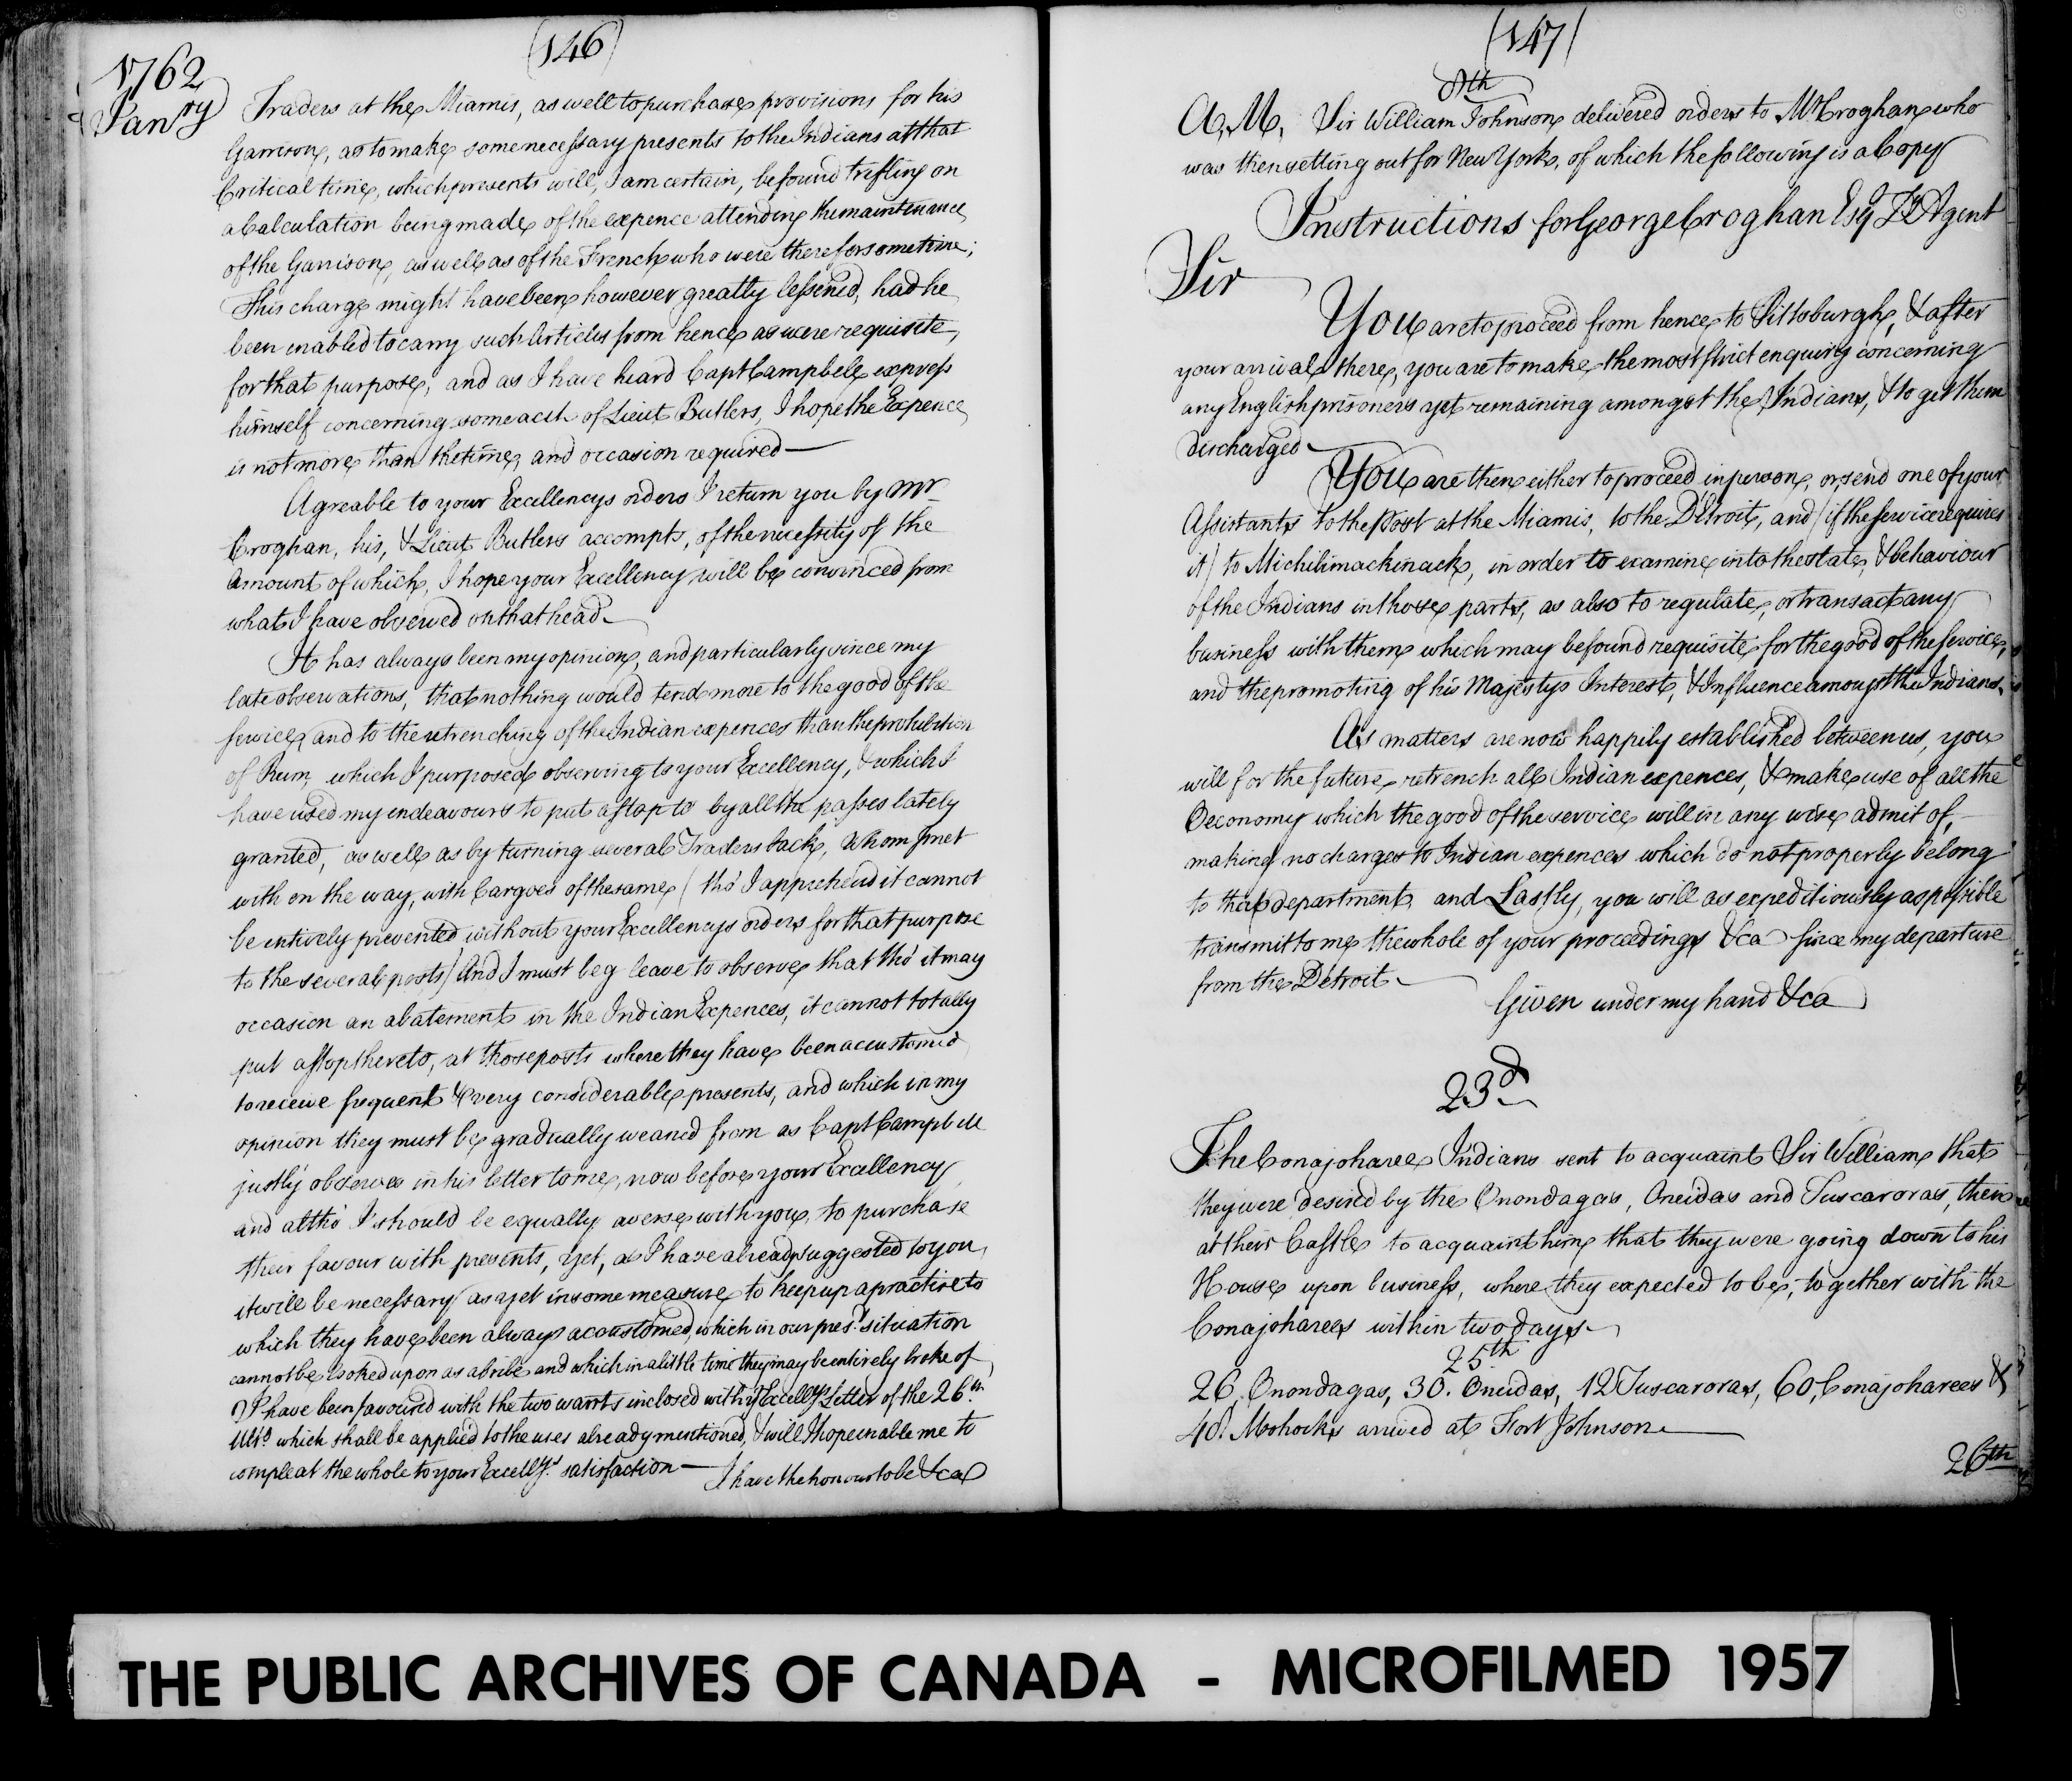 (146)
1762
Janry
Traders at the Miamis, as well to purchase provisions for his
Garrison, as to make some necessary presents to the Indians at that
Critical time, which presents will, I am certain, be found trifling on
a Calculation being made of the expence attending the maintenance
of the Garrison, as well as of the French who were there for some time;
This charge might have been however greatly lessened, had he
been enabled to carry such Articles from hence as were requisite
for that purpose, and as I have heard Capt Campbell express
himself concerning some acct. of Lieut Butlers, I hope the Expence
is not more than the time, and occasion required —
Agreable to your Excellencys orders I return you by Mr
Croghan, his, & Lieut Butlers accompts, of the necessity of the
Amount of which, I hope your Excellency will be convinced from
what I have observed on that head.
It has always been my opinion, and particularly since my
late observations, that nothing would tend more to the good of the
service, and to the retrenching of the Indian expences than the prohibition
of Rum, which I purposed observing to your Excellency, & which I
have used my endeavours to put a stop to by all the passes lately
granted, as well as by turning several Traders back, whom I met
with on the way, with Cargoes of the same, (tho' I apprehend it cannot
be intirely prevented without your Excellencys orders for that purpose
to the several posts) And I must beg leave to observe, that tho' it may
occasion an abatement in the Indian Expences, it cannot totally
put a stop thereto, at those posts where they have been accustom'd
to receive frequent & very considerable presents, and which in my
opinion they must be gradually weaned from as Capt Campbell
justly observes in his letter to me, now before your Excellency
and altho' I should be equally averse with you, to purchase
their favour with presents, yet, as I have already suggested to you,
it will be necessary as yet in some measure to keep up a practice to
which they have been always accustomed, which in our prest. situation
cannot be looked upon as a bribe and which in a little time they may be entirely broke of
I have been favoured with the two warrts inclosed with yr Excellys. Letter of the 26th
Ulto. which shall be applied to the uses already mentioned, & will I hope enable me to
compleat the whole to your Excellys. satisfaction — I have the honour to be &ca
(147)
8th
A, M, Sir William Johnson delivered orders to Mr Croghan who
was then setting out for New York, of which the following is a Copy
Instructions for George Croghan Esqr Dy Agent
Sir
You are to proceed from hence to Pittsburgh, & after
your arrival there, you are to make the most strict enquiry concerning
any English prisoners yet remaining amongst the Indians, & to get them
discharged
You are then either to proceed in person, or send one of your
Assistants to the Post at the Miamis, to the Détroit, and (if the service requires
it) to Michilimackinack, in order to examine into the state, & behaviour
of the Indians in those parts, as also to regulate, or transact any
business with them which may be found requisite for the good of the service,
and the promoting of his Majestys Interest, & Influence amongst the Indians.
As matters are now happily established between us, you
will for the future retrench all Indian expences, & make use of all the
Oeconomy which the good of the service will in any wise admit of,
making no charges to Indian expences which do not properly belong
to that department, and Lastly, you will as expeditiously as possible
transmit to me, the whole of your proceedings &ca since my departure
from the Detroit.
Given under my hand &ca
23d
The Conajoharee Indians sent to acquaint Sir William that
they were desired by the Onondagas, Oneidas and Tuscaroras, then
at their Castle to acquaint him that they were going down to his
House upon business, where they expected to be, together with the
Conajoharees within two days
25th
26, Onondagas, 30. Oneidas, 12 Tuscaroras, 60, Conajoharees &
40. Mohocks arrived at Fort Johnson
26th
THE PUBLIC ARCHIVES OF CANADA - MICROFILMED 1957